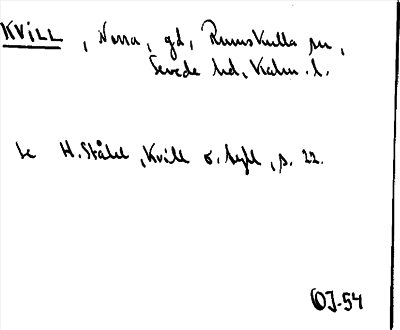 KVILL, Norra, gd, Rumskulla sn,
Sevede hd, Kalm. l.
Se H. Ståhl, Kvill o. hyll, s. 22.
OJ-54